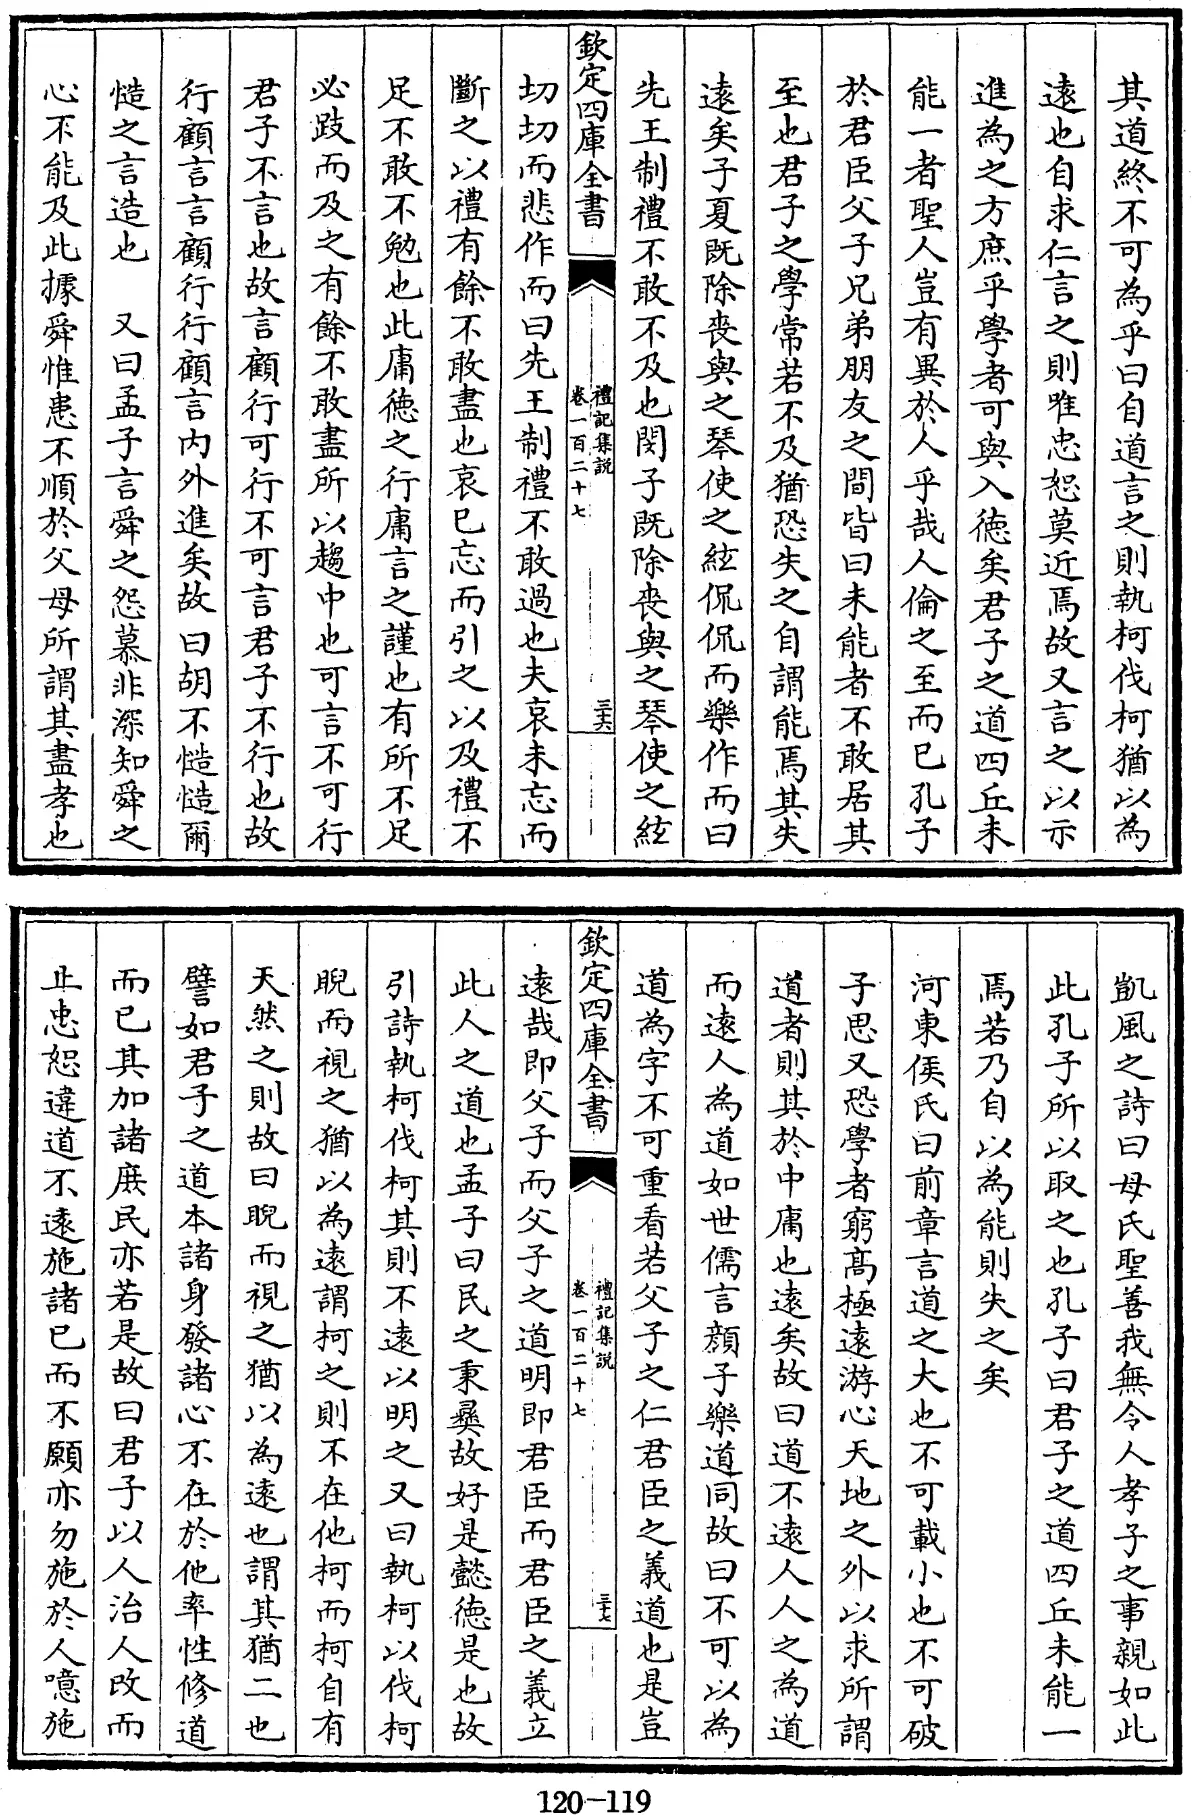 其道終不可為乎曰自道言之則執柯伐柯猶以為
遠也自求仁言之則唯忠恕莫近焉故又言之以示
進為之方庶乎學者可與入德矣君子之道四丘未
能一者聖人豈有異於人乎哉人倫之至而已孔子
於君臣父子兄弟朋友之間皆曰未能者不敢居其
至也君子之學常若不及猶恐失之自謂能焉其失
遠矣子夏既除喪與之琴使之絃侃侃而樂作而曰
先王制禮不敢不及也閔子既除喪與之琴使之絃
欽定四庫全書
禮記集說
卷一百二十七
三六
切切而悲作而曰先王制禮不敢過也夫哀未忘而
斷之以禮有餘不敢盡也哀已忘而引之以及禮不
足不敢不勉也此庸德之行庸言之謹也有所不足
必跂而及之有餘不敢盡所以趨中也可言不可行
君子不言也故言顧行可行不可言君子不行也故
行顧言言顧行行顧言內外進矣故曰胡不慥慥爾
慥之言造也　又曰孟子言舜之怨慕非深知舜之
心不能及此據舜惟患不順於父母所謂其盡孝也
凱風之詩曰母氏聖善我無令人孝子之事親如此
此孔子所以取之也孔子曰君子之道四丘未能一
焉若乃自以為能則失之矣
河東侯氏曰前章言道之大也不可載小也不可破
子思又恐學者窮高極遠游心天地之外以求所謂
道者則其於中庸也遠矣故曰道不遠人人之為道
而遠人為道如世儒言顏子樂道同故曰不可以為
道為字不可重看若父子之仁君臣之義道也是豈
欽定四庫全書
禮記集說
卷一百二十七
三七
遠哉即父子而父子之道明即君臣而君臣之義立
此人之道也孟子曰民之秉彞故好是懿德是也故
引詩執柯伐柯其則不遠以明之又曰執柯以伐柯
睨而視之猶以為遠謂柯之則不在他柯而柯自有
天然之則故曰睨而視之猶以為遠也謂其猶二也
譬如君子之道本諸身發諸心不在於他率性修道
而已其加諸庶民亦若是故曰君子以人治人改而
止忠恕違道不遠施諸已而不願亦勿施於人噫施
120-119